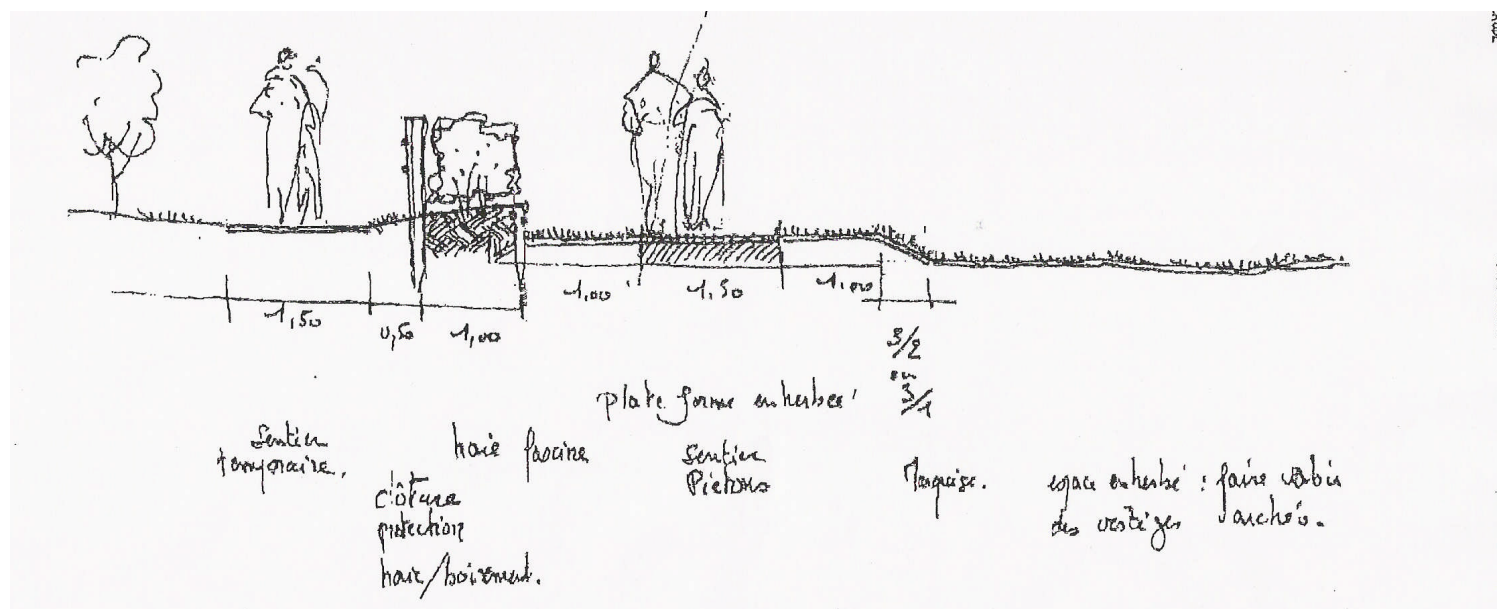 1,50
0,50
1,00
1,00
1,50
1,00
3/2
ou
3/1
plate forme enherbée
Sentier
temporaire.
haie fascine
clôture
protection
haie/boisement.
Sentier
Piétons
espace enherbé : faire
des vestiges archéo.